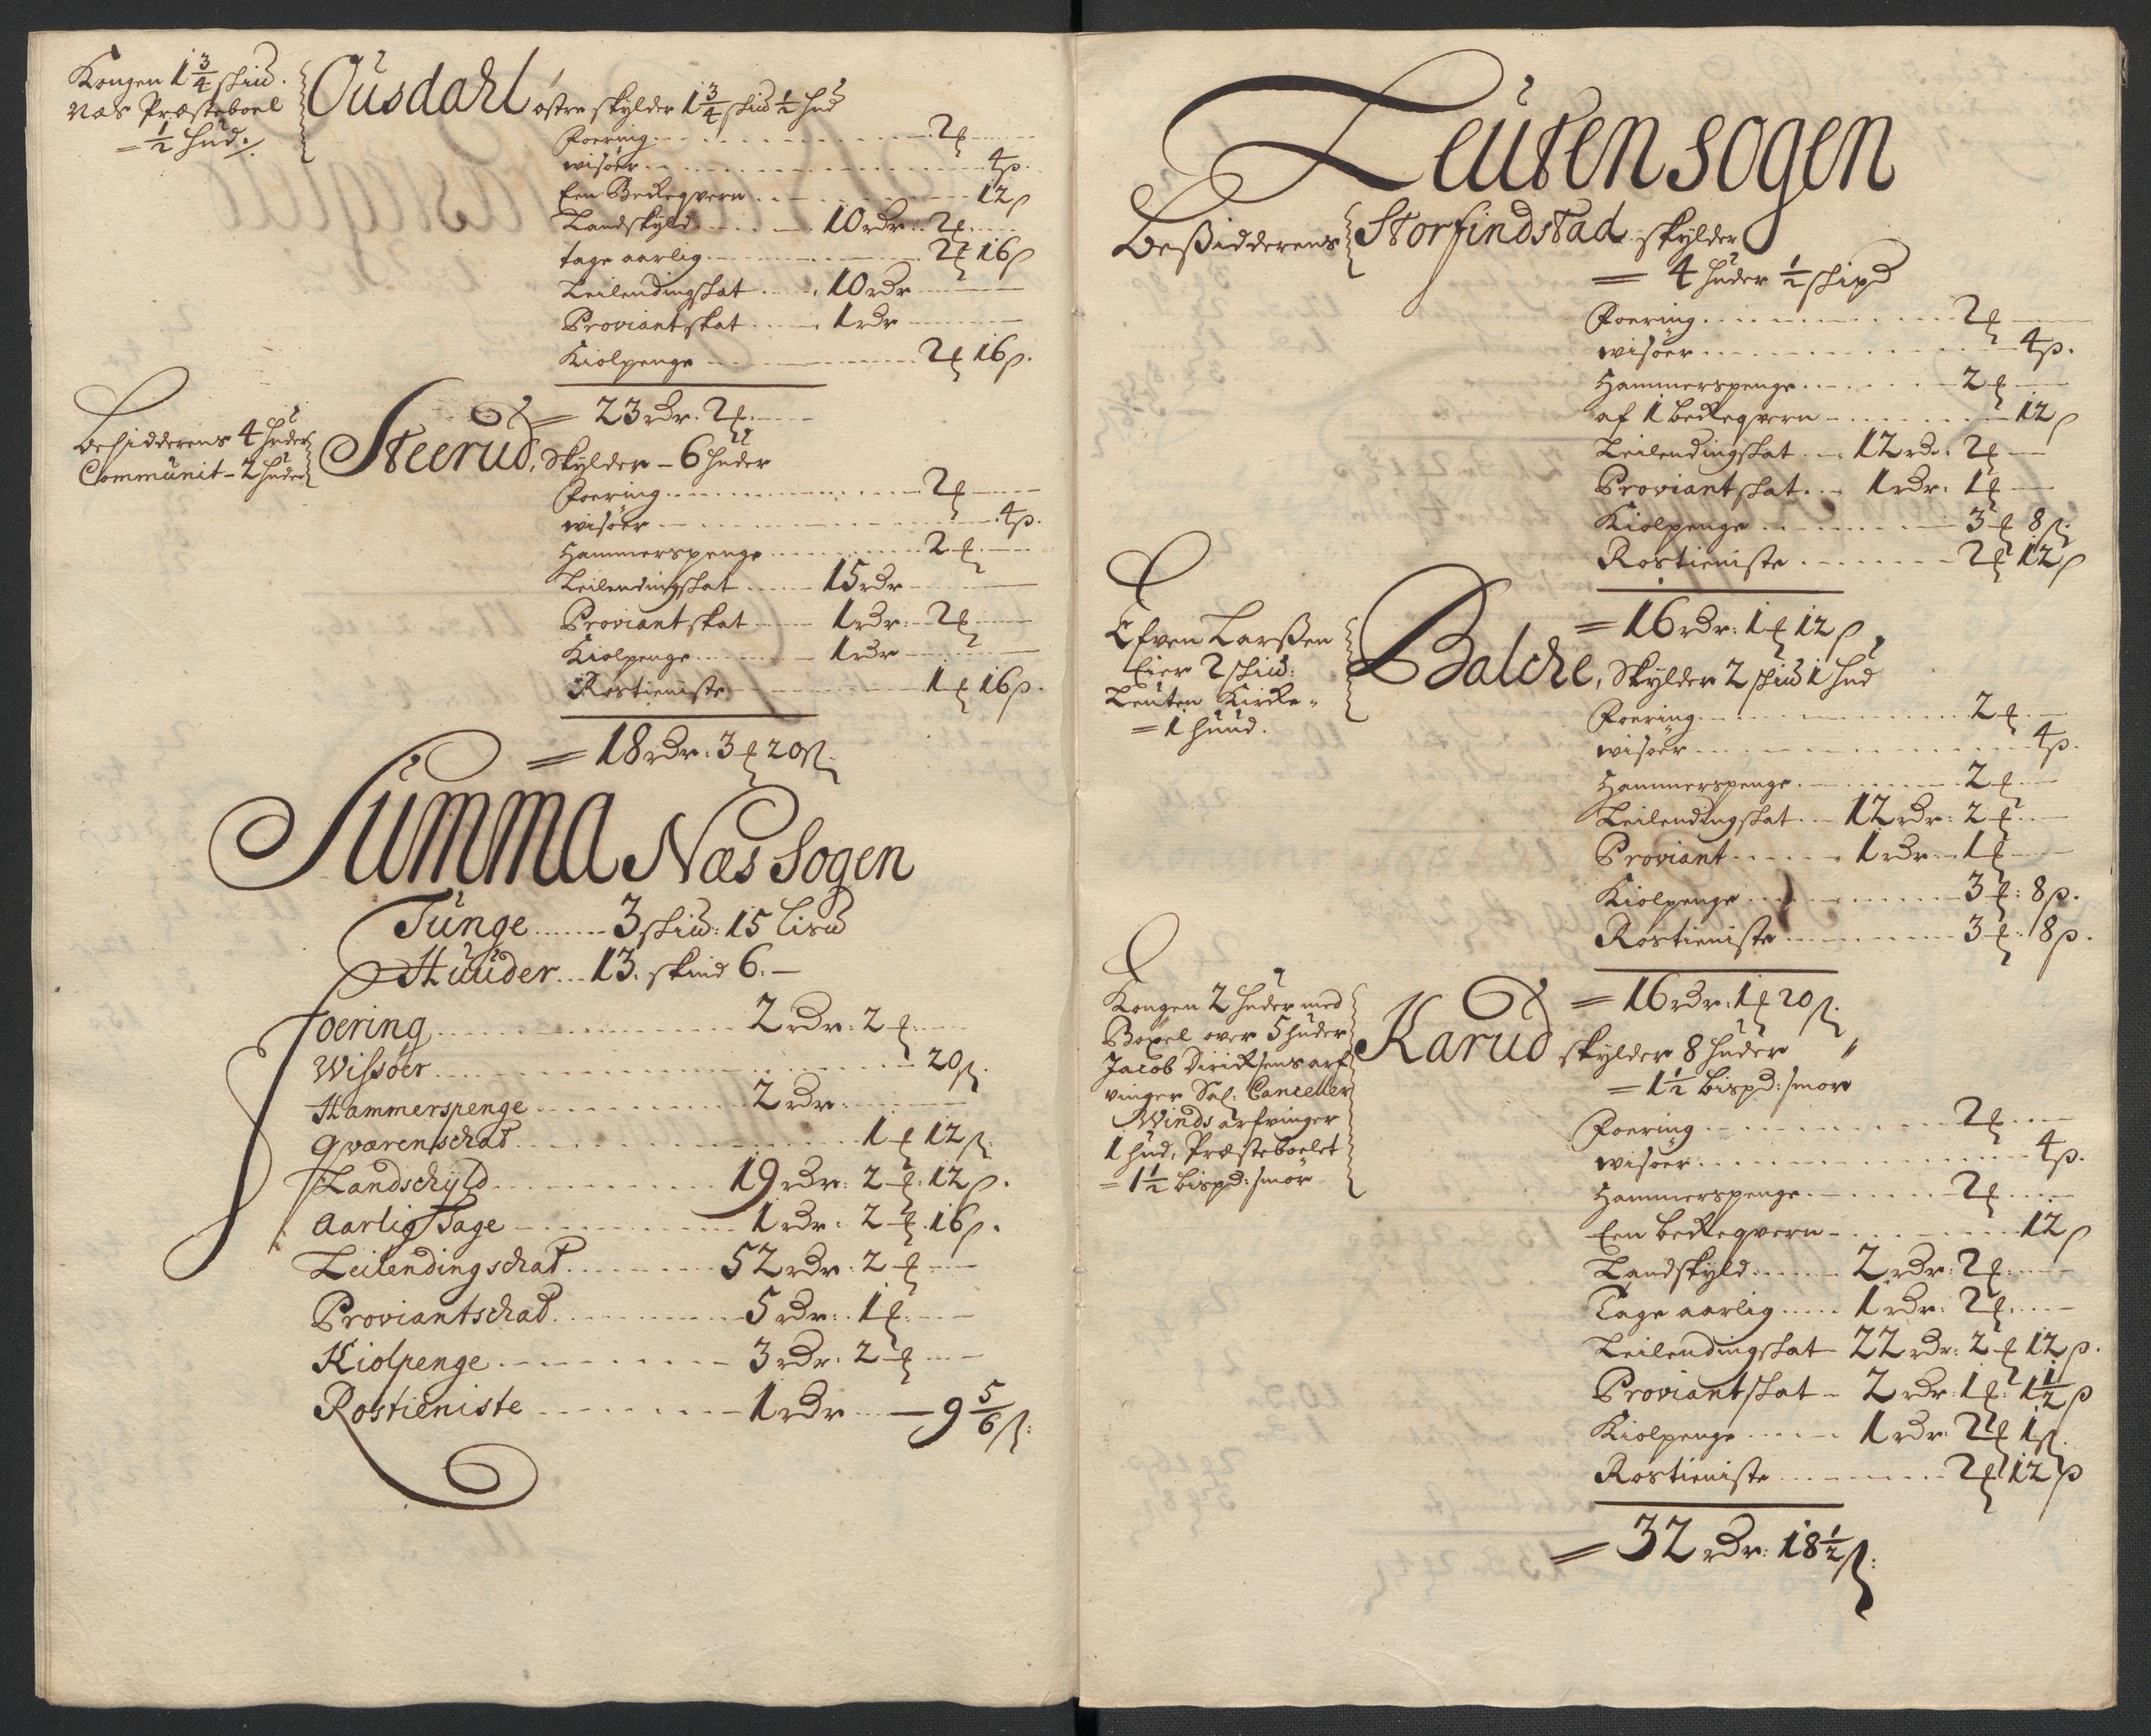 Kongen 1 3/4 skiud.
Næs Præsteboel
= 1/2 hud./.
Ousdahl østre skylder 1 3/4 skiud 1/2 hud
Foering 2 ʒ
wisøer 4 β.
Een Beckeqvern 12 β
Landskyld 10 rdr: 2 ʒ
tage aarlig 2 ʒ 16 β
Leilendingskat 10 rdr
Proviantskat 1 rdr
Kiolpenge 2 ʒ 16 β.
= 23 rdr. 2 ʒ.
Besidderens 4 huder
Communit - 2 huder
Steerud, Skylder - 6 huder
Foering 2 ʒ
wisøer 4 β.
Hammerspenge 2 ʒ.
Leilendingskat 15 rdr
Proviantskat 1 rdr: 2 ʒ
Kiolpenge 1 rdr
Rostieniste 1 ʒ 16 β.
= 18 rdr. 3 ʒ 20 β.
Summa Næs Sogen
Tunge 3 skiud: 15 Lisud
Huuder 13. skind 6. -
Foering 2 rdr: 2 ʒ
Wissøer 20 β.
Hammerspenge 2 rdr
Qværenschat 1 ʒ 12 β.
Landschyld 19 rdr: 2 ʒ: 12 β.
Aarlig Tage 1 rdr: 2 ʒ. 16 β.
Leilendingschat 52 rdr: 2 ʒ
Proviantschat 5 rdr: 1 ʒ
Kiolpenge 3 rdr. 2 ʒ
Rostieniste 1 rdr 9 5/6 β:
Leuten sogen
Beßidderens Storfindstad skylder
= 4 huder 1/2 skipd
Foering 2 ʒ
wisøer 4 β.
Hammerspenge 2 ʒ
af 1 beckeqvern 12 β
Leilendingskat 12 rdr. 2 ʒ
Proviantskat 1 rdr. 1 ʒ
Kiolpenge 3 ʒ 8 β.
Rostieniste 2 ʒ 12 β
= 16 rdr: 1 ʒ 12 β
Efven Larßen
Eier 2 skiud:
Leuten Kircke
= 1 huud.
Balche, Skylder 2 skiud 1 hud
Foering 2 ʒ.
wisøer 4 β.
Hammerspenge 2 ʒ
Leilendingskat 12 rdr: 2 ʒ.
Proviant 1 rdr. 1 ʒ
Kiolpenge 3 ʒ: 8 β.
Rostieniste 3 ʒ: 8 β.
= 16 rdr: 1 ʒ 20 β.
Kongen 2 huder med
Bøxel over 5 huder
Jacob Diricksens arf
vinger Sal: Canceller
Winds arfvinger
1 hud, Præsteboelet
= 1 1/2 bispd: smør
Karud skylder 8 huder
= 1 1/2 bispd: smør
Foering 2 ʒ
wisøer 4 β.
Hammerspenge 2 ʒ
Een beckeqvern 12 β
Landskyld 2 rdr: 2 ʒ:
Tage aarlig 1 rdr: 2 ʒ.
Leilendingskat 22 rdr: 2 ʒ 12 β.
Proviantskat 2 rdr: 1 ʒ: 1 1/2 β
Kiolpenge 1 rdr: 2 ʒ 1 β.
Rostieniste 2 ʒ 12 β
= 32 rdr: 18 1/2 β: